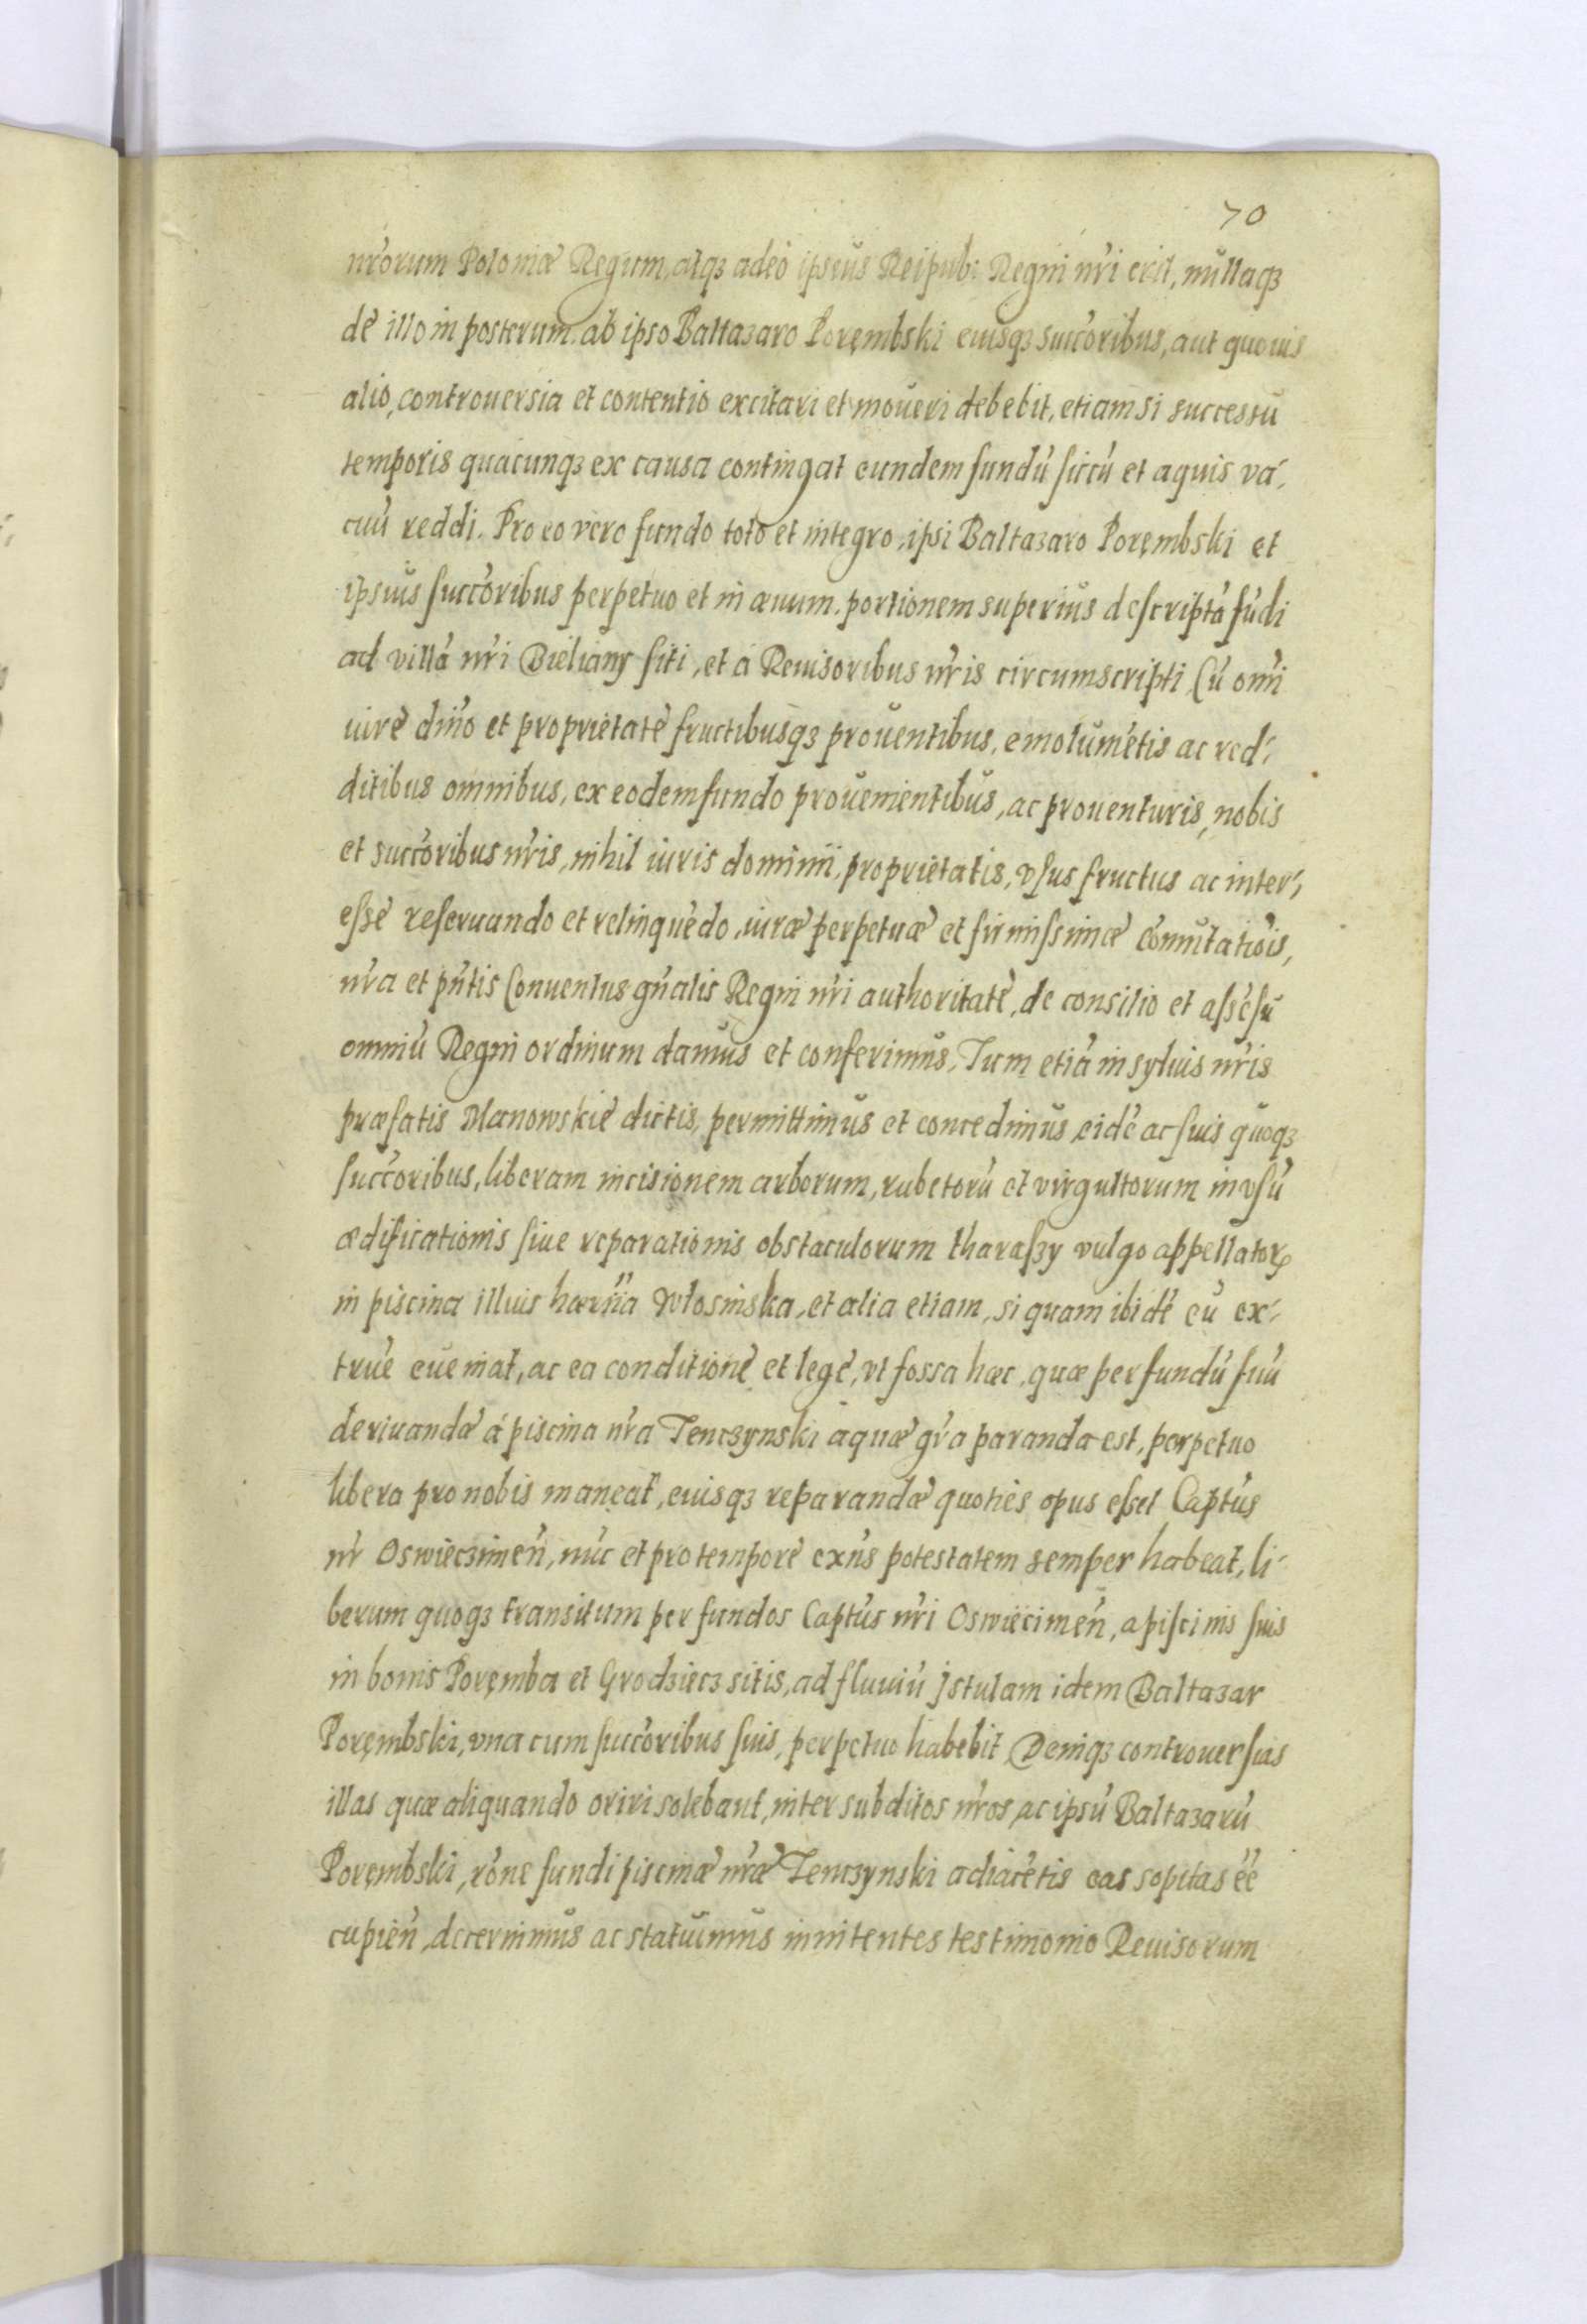 70
nr̃orum Poloniæ Regum, atqꝫ adeò ipsius Reipub: Regni nr̃i erit, nullaqꝫ
de illo in posterum ab ipso Baltazaro Porębski eiusqꝫ succ̃oribus, aut quouis
alio, controuersia et contentio excitari et moueri debebit, etiamsi successu
temporis quacunqꝫ ex causa contingat eundem fundũ siccũ et aquis va-
cuũ reddi. Pro eo vero fundo toto et integro, ipsi Baltazaro Porembski et
ipsius succ̃oribus perpetuo et in æuum, portionem superius descriptã fũdi
ad villã nr̃i Bieliany siti, et à Reuisoribus nr̃is circumscripti, Cũ omi
iure dnĩo et proprietate fructibusqꝫ prouentibus, emolumẽtis ac red-
ditibus omnibus, ex eodem fundo prouenientibus, ac prouenturis, nobis
et succ̃oribus nr̃is, nihil iuris dominii, proprietatis, vsus fructus ac inter-
esse reseruando et relinquẽdo, iure perpetuæ et firmissimæ cõmutatiõis,
nr̃a et pñtis Conuentus gñalis Regni nr̃i authoritate, de consilio et assẽsu
omniũ Regni ordinum damus et conferimus, Tum etiã in syluis nr̃is
præfatis Manowskie dictis, permittimus et concedimus eidẽ ac suis quoqꝫ
succ̃oribus, liberam incisionem arborum, rubetorũ et virgultorum in vsũ
ædificationis siue reparationis obstaculorum tharaszy vulgo appellatorꝝ
in piscina illius Włosinska, et alia etiam, si quam ibidẽ eũ ex-
true eueniat, ac ea conditione et lege, vt fossa hæc, quæ per fundũ suũ
deriuandæ á piscina nr̃a Tenczynski aquæ gr̃a paranda est, perpetuo
libera pro nobis maneat, eiusqꝫ reparandæ quoties opus esset Captus
nr̃ Oswieczimeñ, nũc et pro tempore exñs potestatem semper habeat, li-
berum quoqꝫ transitum per fundos Captus nr̃i Oswiecimeñ, a piscinis suis
in bonis Poręmba et Grodziecz sitis, ad fluuiũ Jstulam idem Baltazar
Porembski, vna cum succ̃oribus suis, perpetuo habebit Deniqꝫ controuersias
illas quæ aliquando oriri solebant, inter subditos nr̃os, ac ipsũ Baltazarũ
Porembski, rõne fundi piscinæ nr̃æ Tenczynski adiacẽtis eas sopitas eẽ
cupieñ, decernimus ac statuimus innitentes testimonio Reuisorum